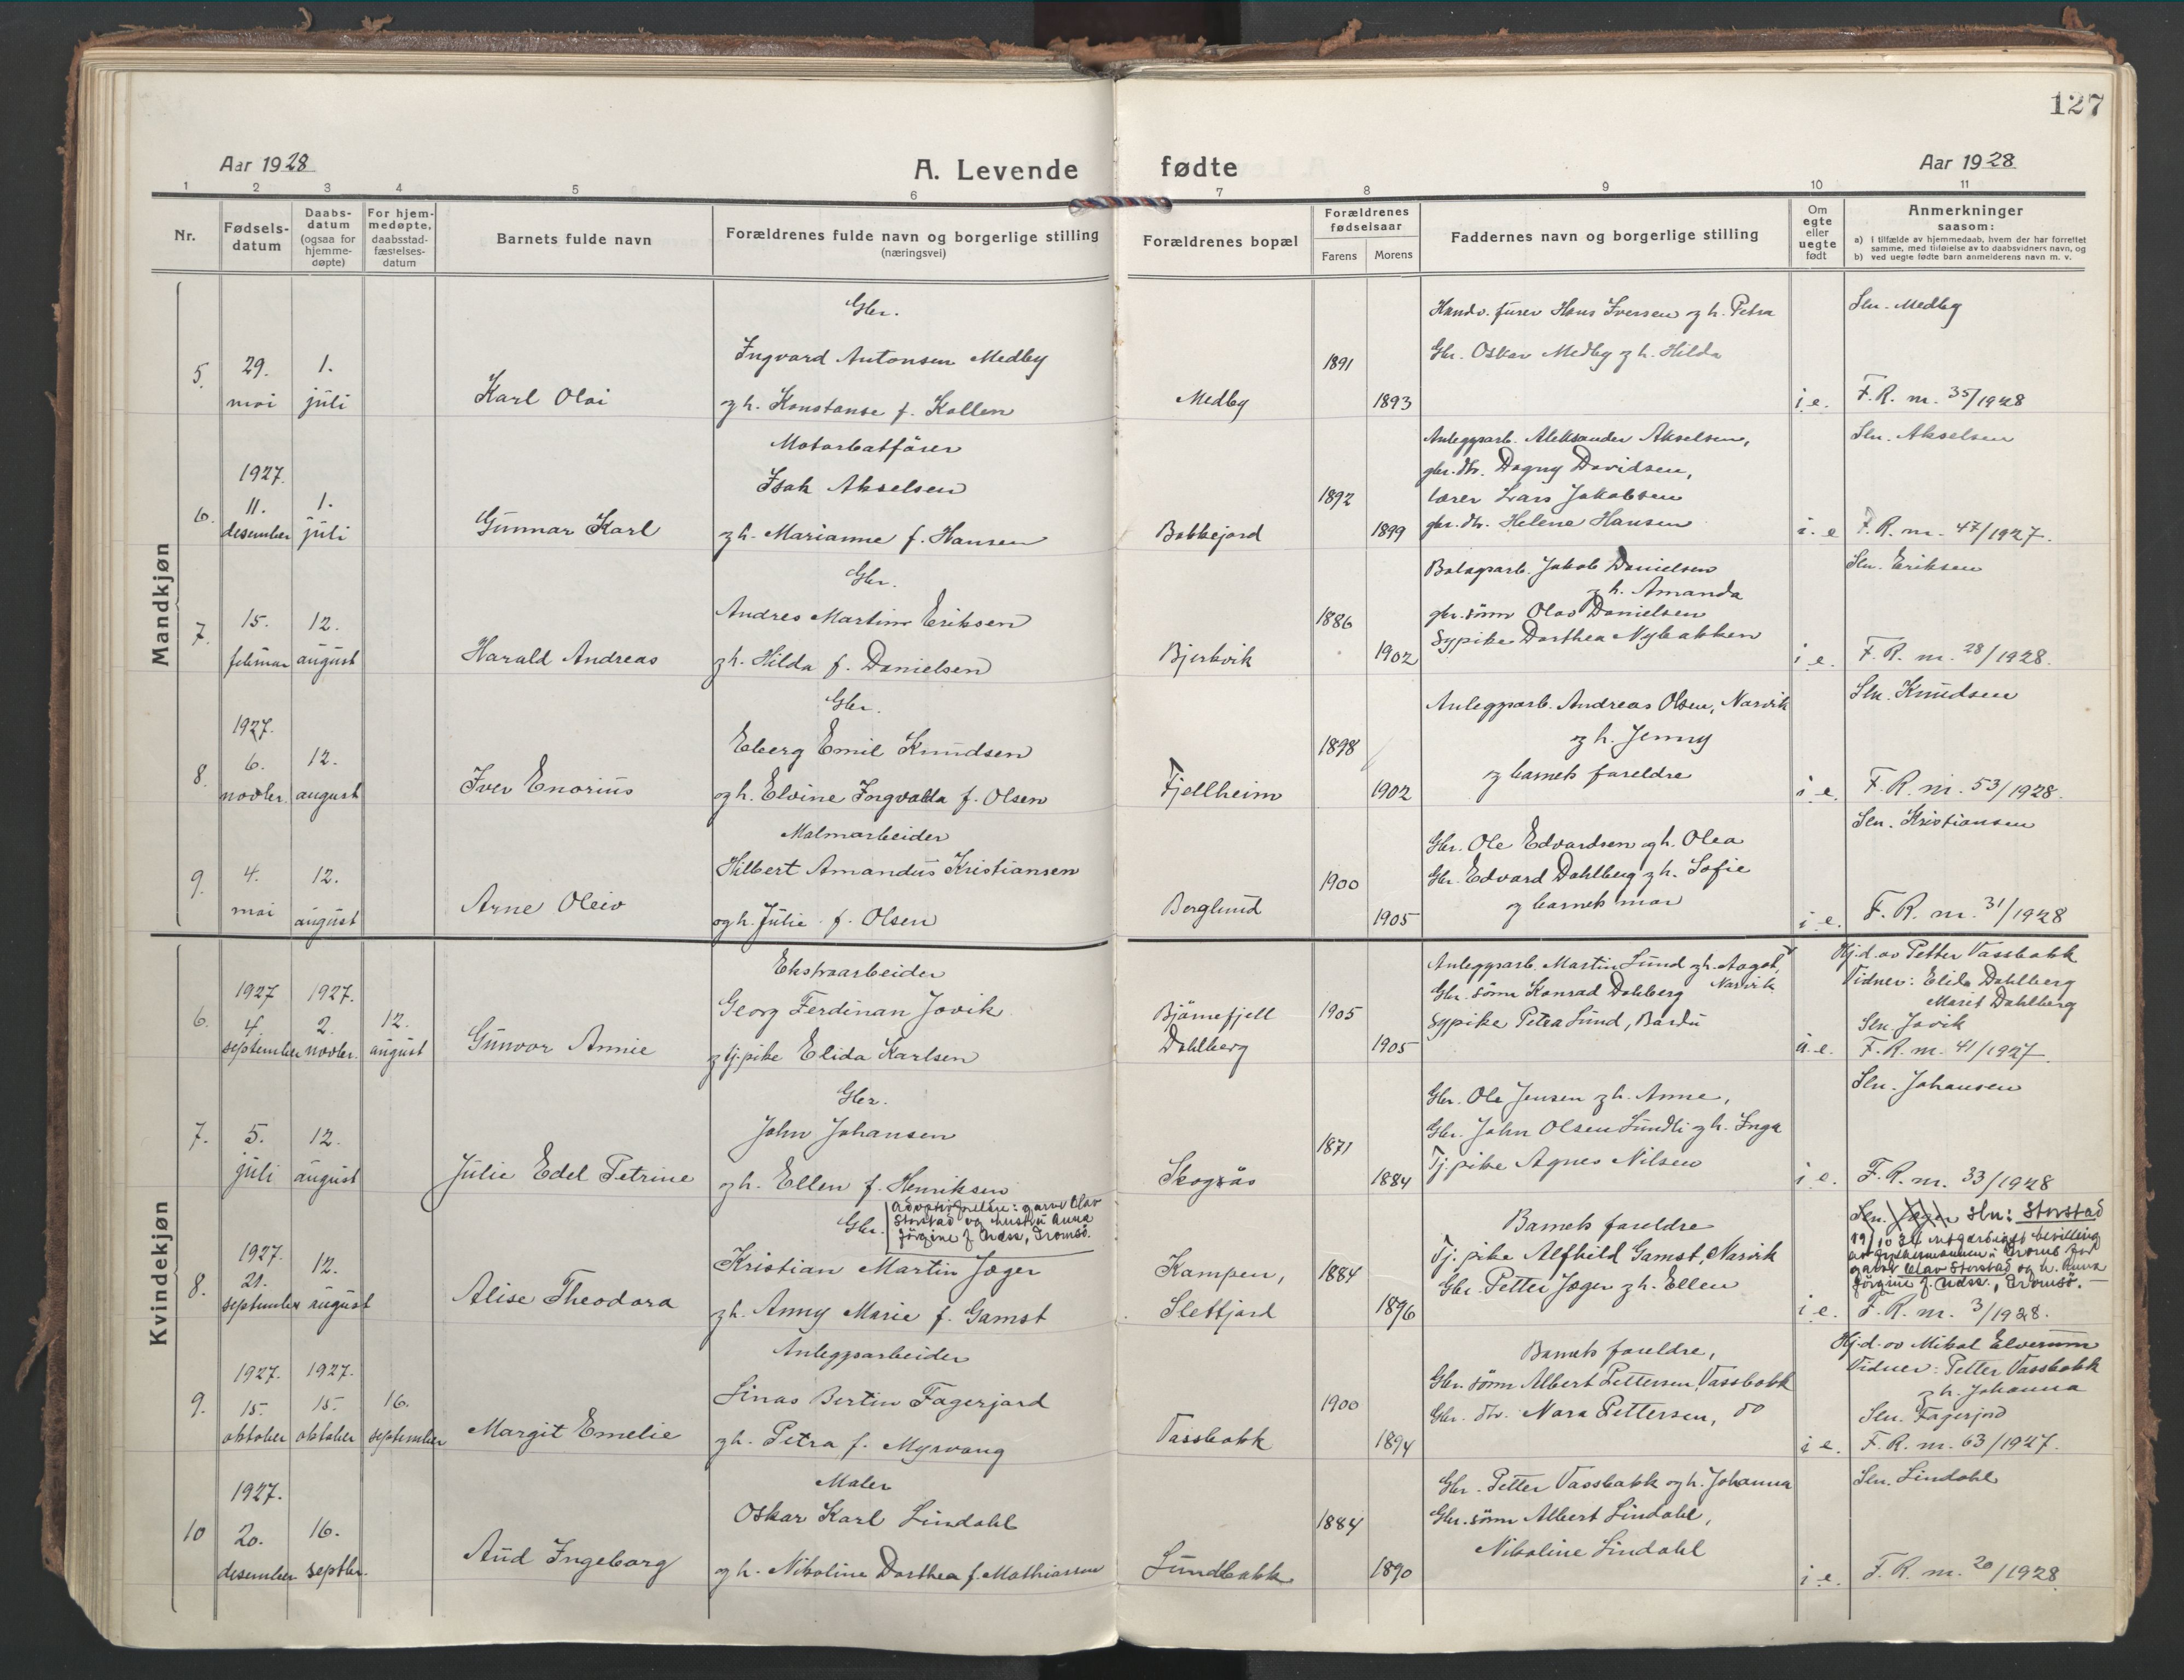 127
Aar 1928
A. Levende fødte
Aar 1928
1 2 3 4 5 6 7 8 9 10 11
Nr.
Fødsels-
datum
Daabs-
datum
(ogsaa for
hjemme-
døpte)
For hjem-
medøpte,
daabsstad-
fæstelses-
datum
Barnets fulde navn
Forældrenes fulde navn og borgerlige stilling
(næringsvei)
Forældrenes bopæl
Forældrenes
fødselsaar
Farens Morens
Faddernes navn og borgerlige stilling
Om
egte
eller
uegte
født
Anmerkninger
saasom:
a) i tilfælde av hjemmedaab, hvem der har forrettet
samme, med tilføielse av to daabsvidners navn, og
b) ved uegte fødte barn anmelderens navn m. v.
Mandkjøn
5.
29.
mai
1.
juli
Karl Olai
Gbr.
Ingvard Antonsen Medby
og h. Konstanse f. Kollen
Medby
1891
1893
Handv. furer Hans Iversen og h. Petra
Gbr. Oskar Medby og h. Hilda
i.e.
Sln. Medby
F.R. nr. 35/1928
6.
1927.
11.
desember
1.
juli
Gunnar Karl
Motorbatförer
Isak Akselsen
og h. Marianne f. Hansen
Bobkejord
1892
1899
Anleggsarb. Aleksander Akselsen,
gbr. dtr. Dagny Davidsen,
lærer Lars Jakobsen
gbr. dtr. Helene Hansen
i.e
Sln. Akselsen
F.R. nr. 47/1927.
7.
15.
februar
12.
august
Harald Andreas
Gbr.
Andreo Martinus Eriksen
og h. Hilda f. Danielsen
Bjerkvik
1886
1902
Bolagsarb. Jakob Danielsen
og h. Amanda
gbr. sönn Olav Danielsen
Sypike Dorthea Nybakken
i.e.
Sln. Eriksen
F.R. nr. 28/1928.
8.
1927.
6.
novbr.
12.
august
Iver Enorius
Gbr.
Eberg Emil Knudsen
og h. Elvine Ingvalda f. Olsen
Fjellheim
1898
1902
Anleggsarb. Andreas Olsen, Narvik
og h. Jenny
og barnets foreldre
i.e.
Sln. Knudsen
F.R. nr. 53/1928.
9.
4.
mai
12.
august
Arne Oleiv
Malmarbeider
Hilbert Amandus Kristiansen
og h. Julie f. Olsen
Berglund
1900
1905
Gbr. Ole Edvardsen og h. Olea
Gbr. Edvard Dahlberg og h. Sofie
og barnets mor
i.e.
Sln. Kristiansen
F.R. nr. 31/1928
Kvindekjøn
6.
1927
4.
september
1927.
2.
novbr.
12.
august
Gunvor Annie
Ekstraarbeider
Georg Ferdinan Jovik
og tj.pike Elida Karlsen
Björnefjell
Dahlberg
1905
1905
Anleggsarb. Martin Lund og h. Aagot,
Narvik
Gbr. sönn Konrad Dahlberg
sypike Petra Lund, Bardu
u.e.
Hj.d. av Petter Vassbakk
Vidner: Elida Dahlberg
Marit Dahlberg
Sln. Jovik
F.R. nr. 41/1927
7.
5.
juli
12.
august
Julie Edel Petrine
Gbr.
John Johansen
og h. Ellen f. Henriksen
Skogsås
1871
1884
Gbr. Ole Jensen og h. Anne,
Gbr. John Olsen Lundli og h. Inga
Tj. pike Agnes Nilsen
i.e.
Sln. Johansen
F.R. nr. 33/1928
8.
1927.
21.
september
12.
august
Alise Theodora
Gbr.
Olav
Storstad og hustru Anna
Jörgine f. Næss, Tromsö.
Kristian Martin Jæger
og h. Anny Marie f. Gamst
Kampen,
Sletfjord
1884
1896
Barnets foreldre
Tj. pike Alfhild Gamst, Narvik
Gbr. Petter Jæger og h. Ellen
i.e.
Sln. Jæger Sln: Storstad
bevilling
Olav Storstad og h. Anna
Jörgine f. Næss., Tromsö.
F.R. nr. 3/1928.
9.
1927.
15.
oktober
1927.
15.
oktober
16.
september
Margit Emelie
Anleggsarbeider
Linas Bertin Fagerjord
og h. Petra f. Myrvang
Vassbakk
1900
1894
Barnets foreldre,
Gbr. sönn Albert Pettersen, Vassbakk
Gbr. dtr. Nora Pettersen, do
i.e.
Hj.d. av Mikal Elverum
Vidner: Petter Vassbakk
og h. Johanna
Sln. Fagerjord
F.R. nr. 63/1927.
10
1927.
20.
desember
16.
septbr.
Aud Ingeborg
Maler
Oskar Karl Lindahl
og h. Nikoline Dorthea f. Mathiassen
Lundbakk
1884
1890
Gbr. Petter Vassbakk og h. Johanna
Gbr. sönn Albert Lindahl,
Nikoline Lindahl
i.e.
Sln. Lindahl
F.R. nr. 20/1928